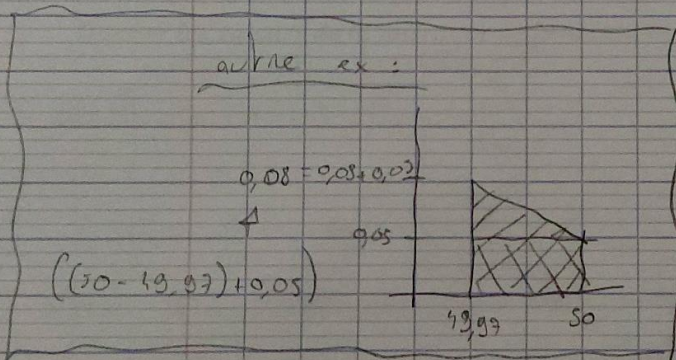 autre ex :
0,08 = 0,05+0,03
0,05
((50 - 49,97) + 0,05)
49,97 50